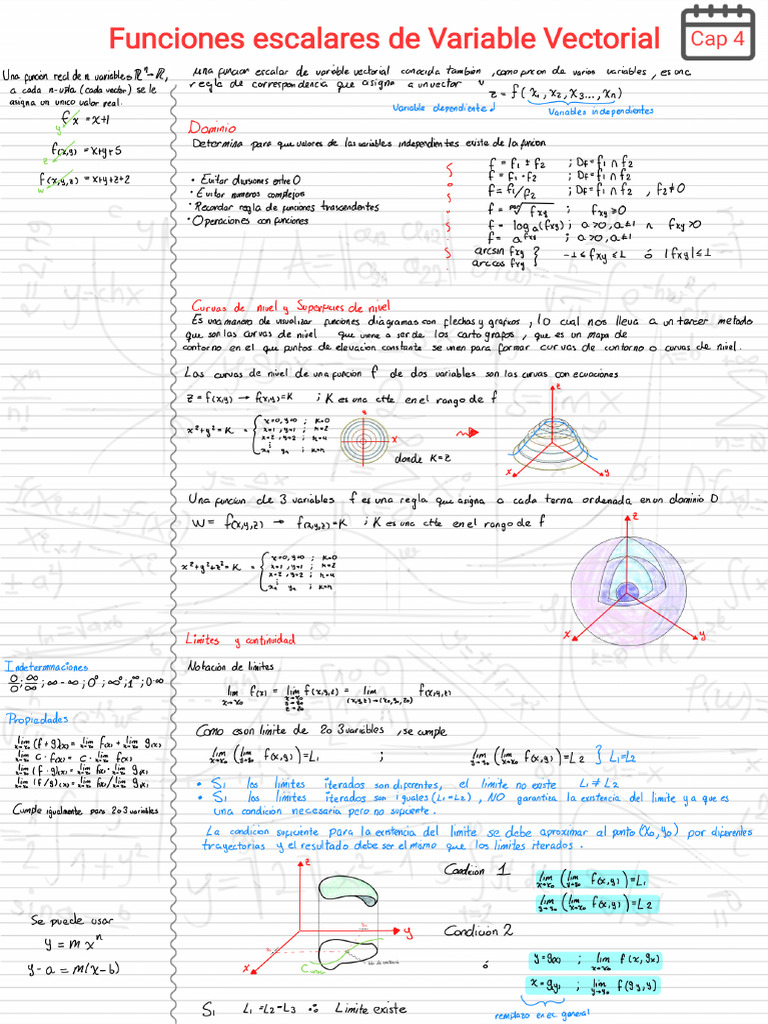 Funciones escalares de Variable Vectorial
Cap 4
Una función real de n variables ℝⁿ→ℝ,
a cada n-upla (cada vector) se le
asigna un unico valor real.
f x = x+1
y
f(x,y) = x+y+5
z
f(x,y,z) = x+y+z+2
w
una funcion escalar de variable vectorial conocida también, como funcion de varias variables, es una
regla de correspondencia que asigna a un vector v
z = f(x₁, x₂, x₃..., xn)
Variable dependiente
Variables independientes
Dominio
Determina para que valores de las variables independientes existe de la funcion
• Evitar divisiones entre 0
• Evitar numeros complejos
• Recordar regla de funciones trascendentes
• Operaciones con funciones
f = f₁ ± f₂ ; Df = f₁ ∩ f₂
f = f₁ · f₂ ; Df = f₁ ∩ f₂
f = f₁/f₂ ; Df = f₁ ∩ f₂ , f₂≠0
f = √fxy ; fxy ≥0
f = log a (fxy) ; a>0, a≠1 ∧ fxy>0
f = a^fxy ; a>0, a≠1
arcsin fxy
arccos fxy } -1 ≤ fxy ≤ 1 ó |fxy| ≤ 1
Curvas de nivel y Superficies de nivel
Es una manera de visualizar funciones diagramas con flechas y graficos, lo cual nos lleva a un tercer metodo
que son las curvas de nivel que viene a ser de los cartografos, que es un mapa de
contorno en el que puntos de elevacion constante se unen para formar curvas de contorno o curvas de nivel.
Las curvas de nivel de una función f de dos variables son las curvas con ecuaciones
z = f(x,y) → f(x,y)=K ; K es una ctte en el rango de f
x²+y² = K = { x=0, y=0 ; K=0
x=1, y=1 ; K=2
x=2, y=2 ; K=4
⋮
xi yi ; K=n
y
x
donde K=z
z
x
y
Una funcion de 3 variables f es una regla que asigna a cada terna ordenada en un dominio D
W = f(x,y,z) → f(x,y,z)=K ; K es una ctte en el rango de f
x²+y²+z² = K = { x=0, y=0 ; K=0
x=1, y=1 ; K=2
x=2, y=2 ; K=4
⋮
xi yi ; K=n
z
x
y
Limites y continuidad
Indeterminaciones
0/0 ; ∞/∞ ; ∞-∞ ; 0⁰ ; ∞⁰ ; 1^∞ ; 0·∞
Propiedades
lim x→x₀ (f+g)(x) = lim x→x₀ f(x) + lim x→x₀ g(x)
lim x→x₀ c·f(x) = c·lim x→x₀ f(x)
lim x→x₀ (f·g)(x) = lim x→x₀ f(x)·lim x→x₀ g(x)
lim x→x₀ (f/g)(x) = lim x→x₀ f(x)/lim x→x₀ g(x)
Cumple igualmente para 2 o 3 variables
Notación de limites
lim x→x₀ f(x) = lim x→x₀ y→y₀ z→z₀ f(x,y,z) = lim (x,y,z)→(x₀,y₀,z₀) f(x,y,z)
Como es un limite de 2 o 3 variables, se cumple
lim x→x₀ (lim y→y₀ f(x,y)) = L₁ ; lim y→y₀ (lim x→x₀ f(x,y)) = L2 } L₁=L2
• Si los limites iterados son diferentes, el limite no existe L₁≠L2
• Si los limites iterados son iguales (L₁=L2), NO garantiza la existencia del limite ya que es
una condición necesaria pero no suficiente.
La condicion suficiente para la existencia del limite se debe aproximar al punto (x₀,y₀) por diferentes
trayectorias y el resultado debe ser el mismo que los limites iterados.
Se puede usar
y = m xⁿ
y-a = m(x-b)
z
y
x
Condicion 1
lim x→x₀ (lim y→y₀ f(x,y)) = L₁
lim y→y₀ (lim x→x₀ f(x,y)) = L2
Condición 2
y = g(x) ; lim x→x₀ f(x, gx)
ó
x = gy ; lim y→y₀ f(gy, y)
remplazo en ec general
Si L₁=L2=L3 ∴ Limite existe